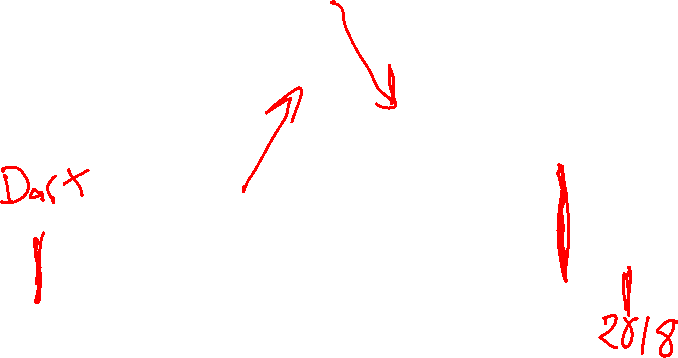 Dart
2018